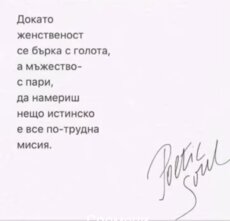 Докато
женственост
се бърка с голота,
а мъжество-
с пари,
да намериш
нещо истинско
е все по-трудна
мисия.
Poetic
Soul